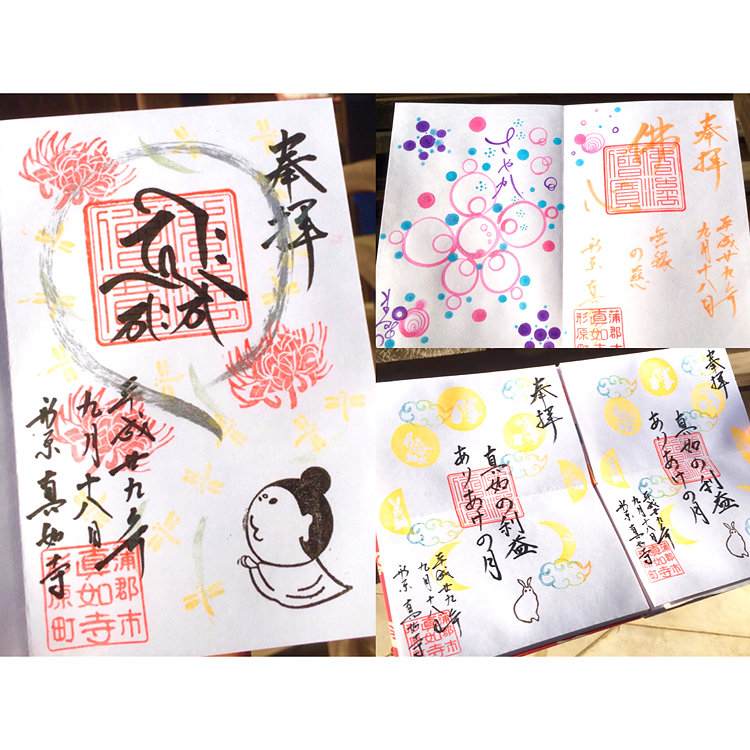 奉拝
平成廿九年
九月十八日
形原 真如寺
蒲郡市
真如寺
形原町
さやか
奉拝
佛心
平成廿九年
九月十八日
の慈
形原 真
蒲郡市
真如寺
形原町
奉拝
真如の利益
ありあけの月
平成廿九年
九月十八日
形原 真如寺
奉拝
真如の利益
ありあけの月
平成廿九年
九月十八日
形原 真如寺